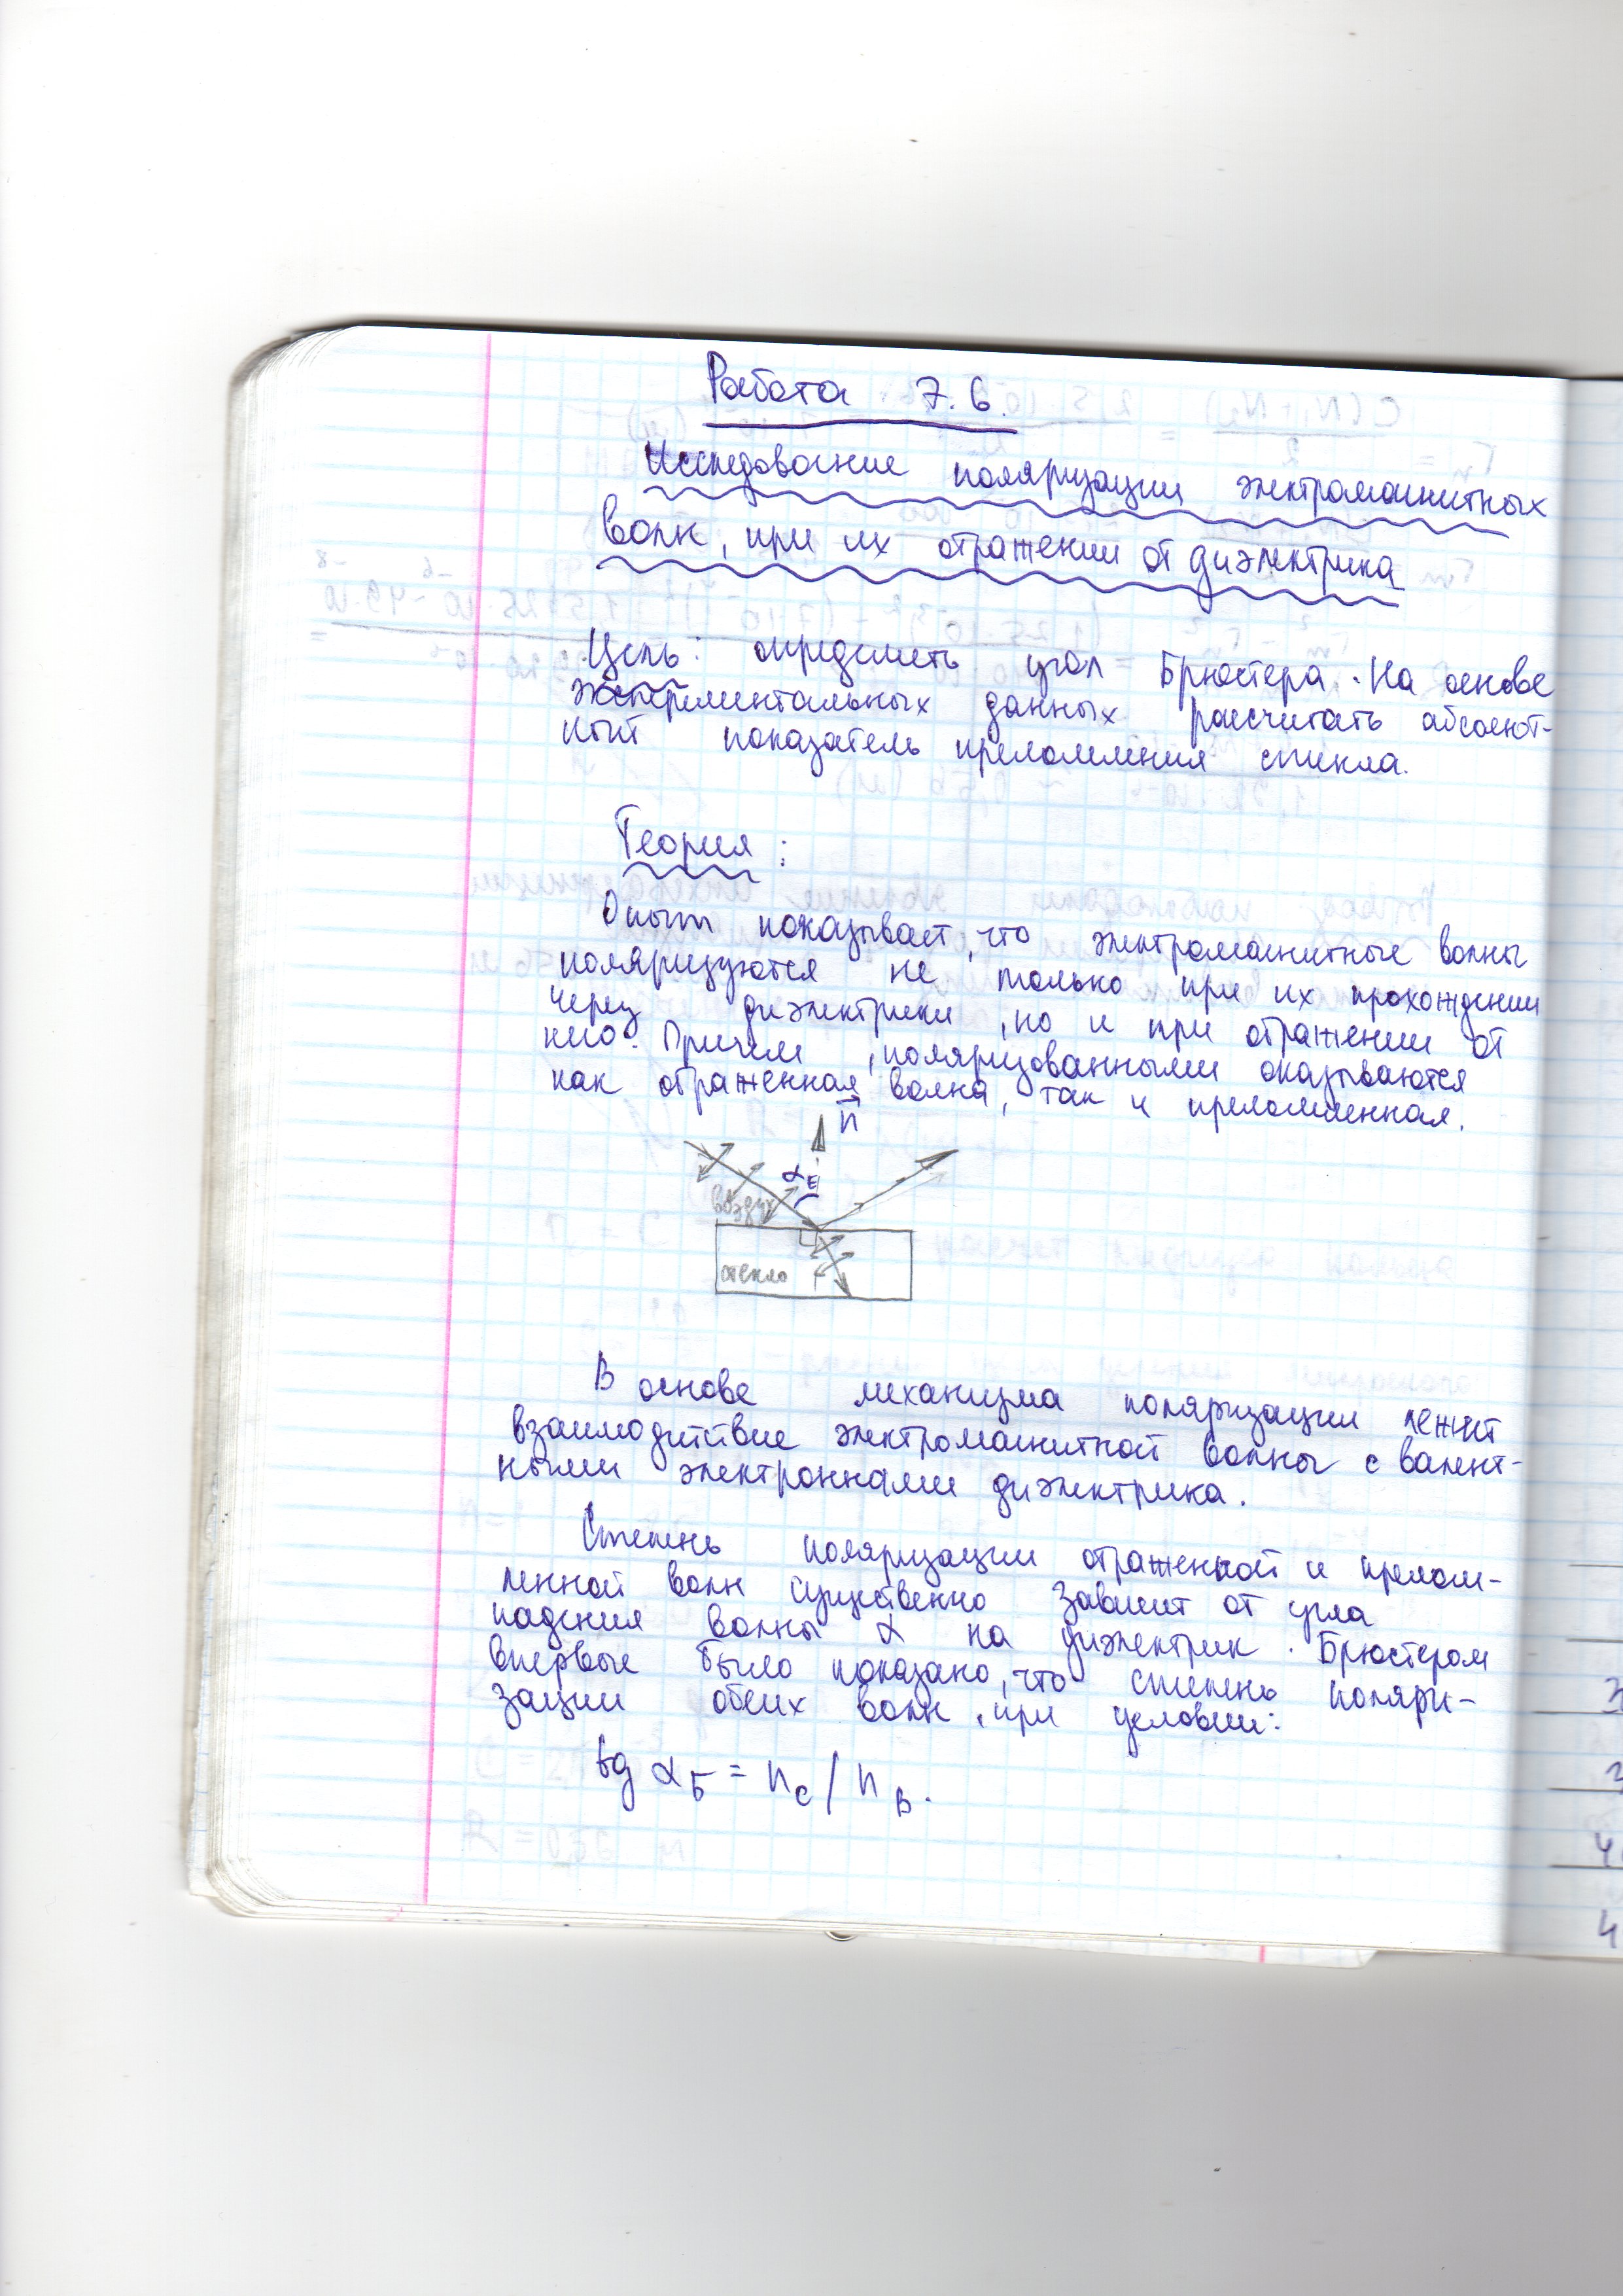 Работа 7.6.
Исследование поляризации электромагнитных
волн, при их отражении от диэлектрика
Цель: определить угол Брюстера. На основе
экспериментальных данных рассчитать абсолют-
ный показатель преломления стекла.
Теория:
Опыт показывает, что электромагнитные волны
поляризуются не только при их прохождении
через диэлектрики, но и при отражении от
него. Причем, поляризованными оказываются
как отраженная волна, так и преломленная.
n
α Б
воздух
стекло
В основе механизма поляризации лежит
взаимодействие электромагнитной волны с валент-
ными электроннами диэлектрика.
Степень поляризации отраженной и прелом-
ленной волн существенно зависит от угла
падения волны α на диэлектрик. Брюстером
впервые было показано, что степень поляри-
зации обеих волн, при условии:
tg α Б = n с / n в.
3
3
4
4